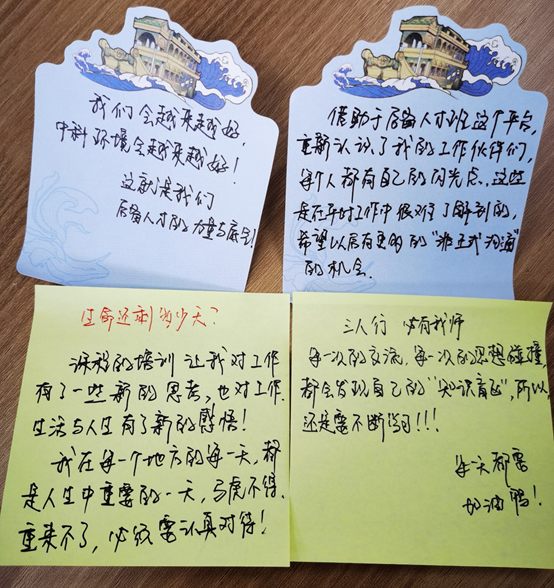 我们会越来越好，
中科环境会越来越好！
这就是我们
后备人才的力量与底气！
借助于后备人才班这个平台，
重新认识了我的工作伙伴们，
每个人都有自己的闪光点，这些
是在平时工作中很难了解到的，
希望以后有更多的“非正式沟通”
的机会.
生命还剩多少天？
课程的培训让我对工作
有了一些新的思考，也对工作.
生活与人生有了新的感悟！
我在每一个地方的每一天，都
是人生中重要的一天，马虎不得.
重来不了，必须要认真对待！
三人行 必有我师
每一次的交流，每一次的思想碰撞，
都会发现自己的“知识盲区”，所以，
还是要不断学习!!!
每天都要
加油鸭！